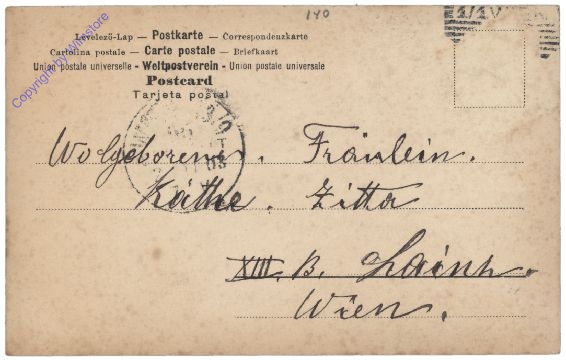 140
1/1 W
Levelező-Lap — Postkarte — Correspondenzkarte
Cartolina postale — Carte postale — Briefkaart
Union postale universelle - Weltpostverein - Union postale universale
Postcard
Tarjeta postal
Copyright by Wiinstore
Wolgeboren. Fräulein.
Käthe. Zitta
XIII. B. Lainz.
Wien.